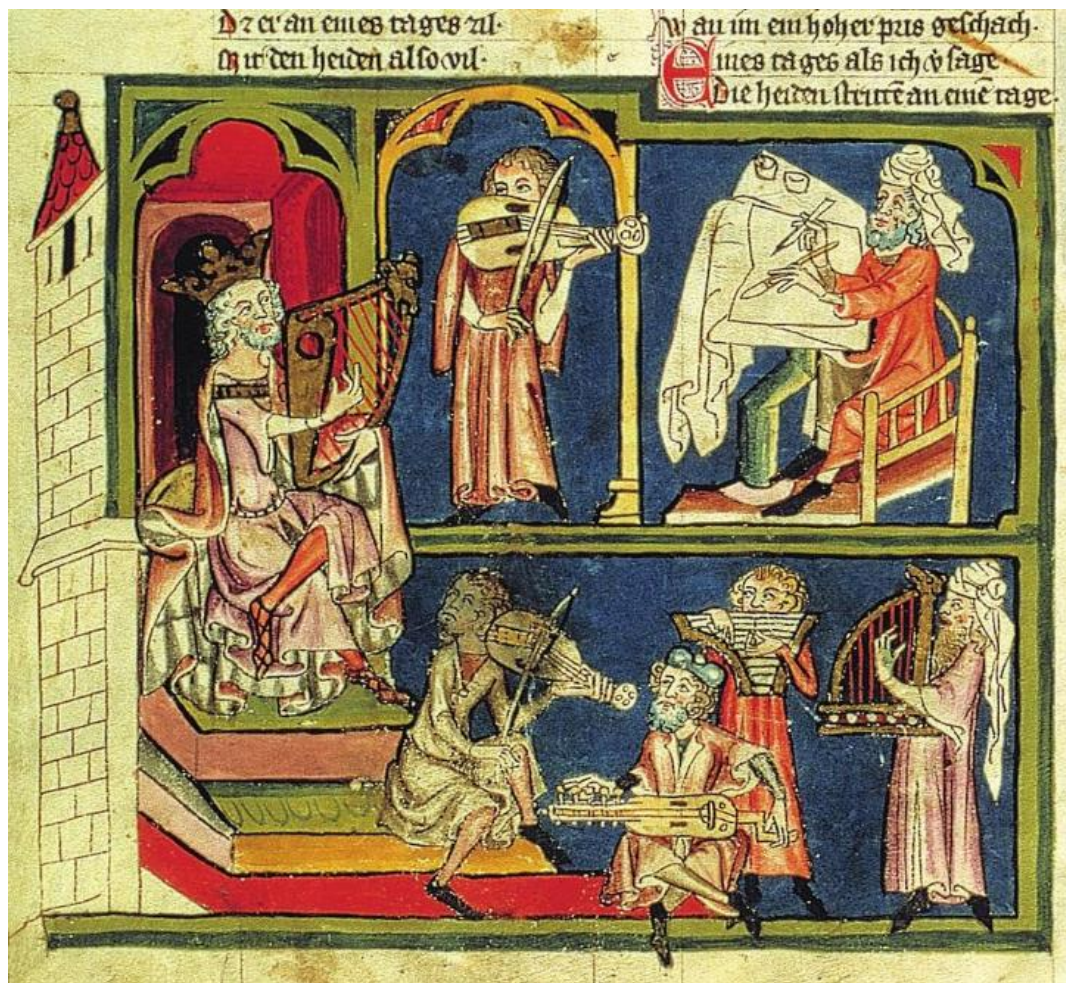 Dz er an eines tages zil·
Mit den heiden also vil·
Wan im ein hoher pris geschach·
Eines tages als ich v̊ sage·
Die heiden strittē an einē tage·